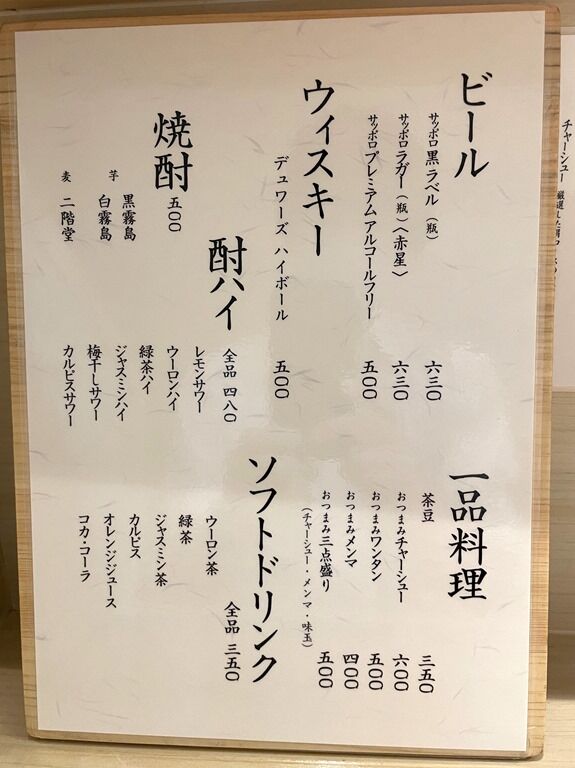 ビール
サッポロ黒ラベル（瓶） 六三〇
サッポロラガー（瓶）〈赤星〉 六三〇
サッポロプレミアムアルコールフリー 五〇〇
ウィスキー
デュワーズ ハイボール 五〇〇
焼酎
五〇〇
芋 黒霧島
白霧島
麦 二階堂
酎ハイ
全品 四八〇
レモンサワー
ウーロンハイ
緑茶ハイ
ジャスミンハイ
梅干しサワー
カルピスサワー
一品料理
茶豆 三五〇
おつまみチャーシュー 六〇〇
おつまみワンタン 五〇〇
おつまみメンマ 四〇〇
おつまみ三点盛り 五〇〇
（チャーシュー・メンマ・味玉）
ソフトドリンク
全品 三五〇
ウーロン茶
緑茶
ジャスミン茶
カルピス
オレンジジュース
コカ・コーラ
チャーシュー